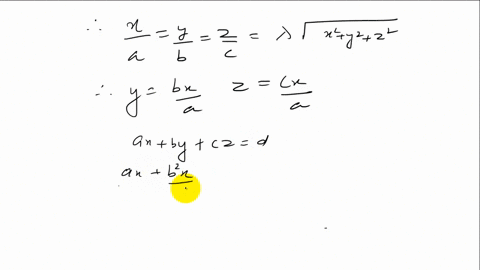 ∴ x/a = y/b = z/c = λ √(x²+y²+z²)
∴ y = bx/a z = cx/a
ax + by + cz = d
ax + b²x/